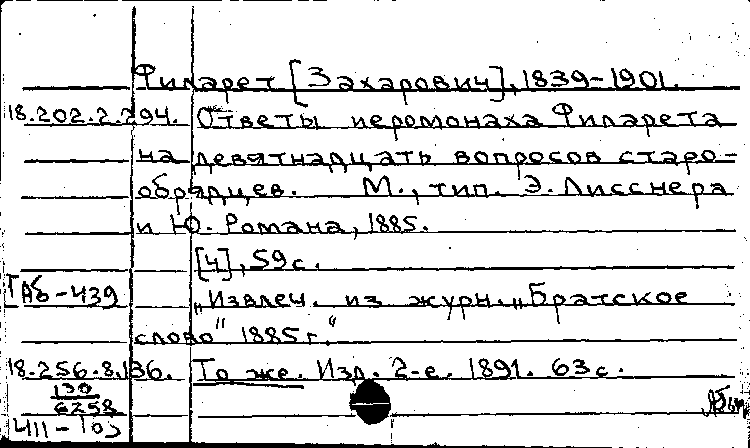 Филарет [Захарович], 1839-1901.
18.202.2.294. Ответы иеромонаха Филарета
на девятнадцать вопросов старо-
обрядцев. М., тип. Э. Лисснера
и Ю. Романа, 1885.
[4], 59 с.
ГАБ-439
„Извлеч. из журн. „Братское
слово" 1885 г."
18.256.8.136. То же. Изд. 2-е. 1891. 63 с.
130
6258